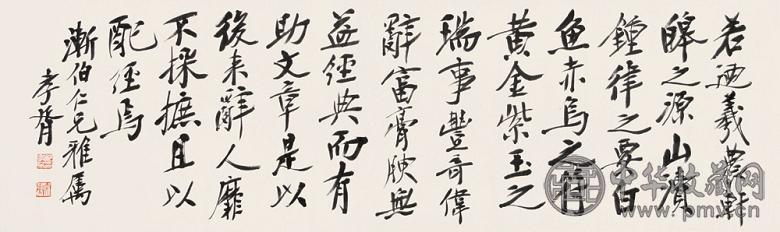 若迺羲農軒
皞之源山瀆
鍾律之要白
魚赤烏之符
黄金紫玉之
瑞事豐奇偉
辭富膏腴無
益經典而有
助文章是以
後來辭人靡
不採摭且以
配經焉
漸伯仁兄雅屬
孝胥
中华收藏网
www.pmyx.cn